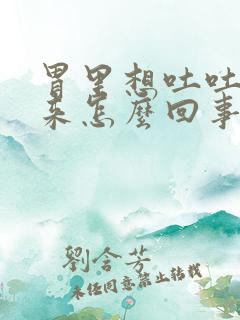 胃里想吐吐
来怎麽回事
劉含芳
未经同意禁止转载